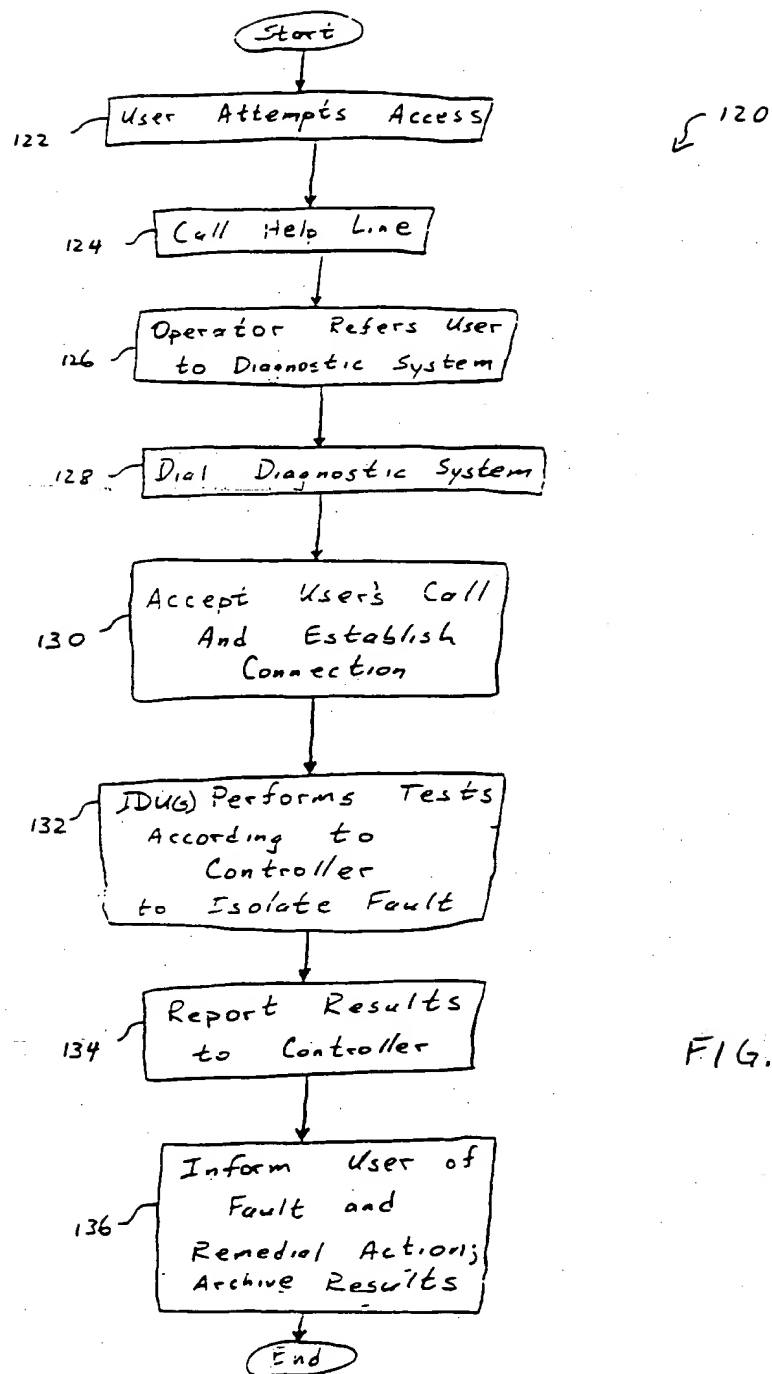 Start
User Attempts Access
122
120
Call Help Line
124
Operator Refers User
to Diagnostic System
126
Dial Diagnostic System
128
Accept User's Call
And Establish
Connection
130
IDU(s) Performs Tests
According to
Controller
to Isolate Fault
132
Report Results
to Controller
134
FIG.
Inform User of
Fault and
Remedial Action;
Archive Results
136
End